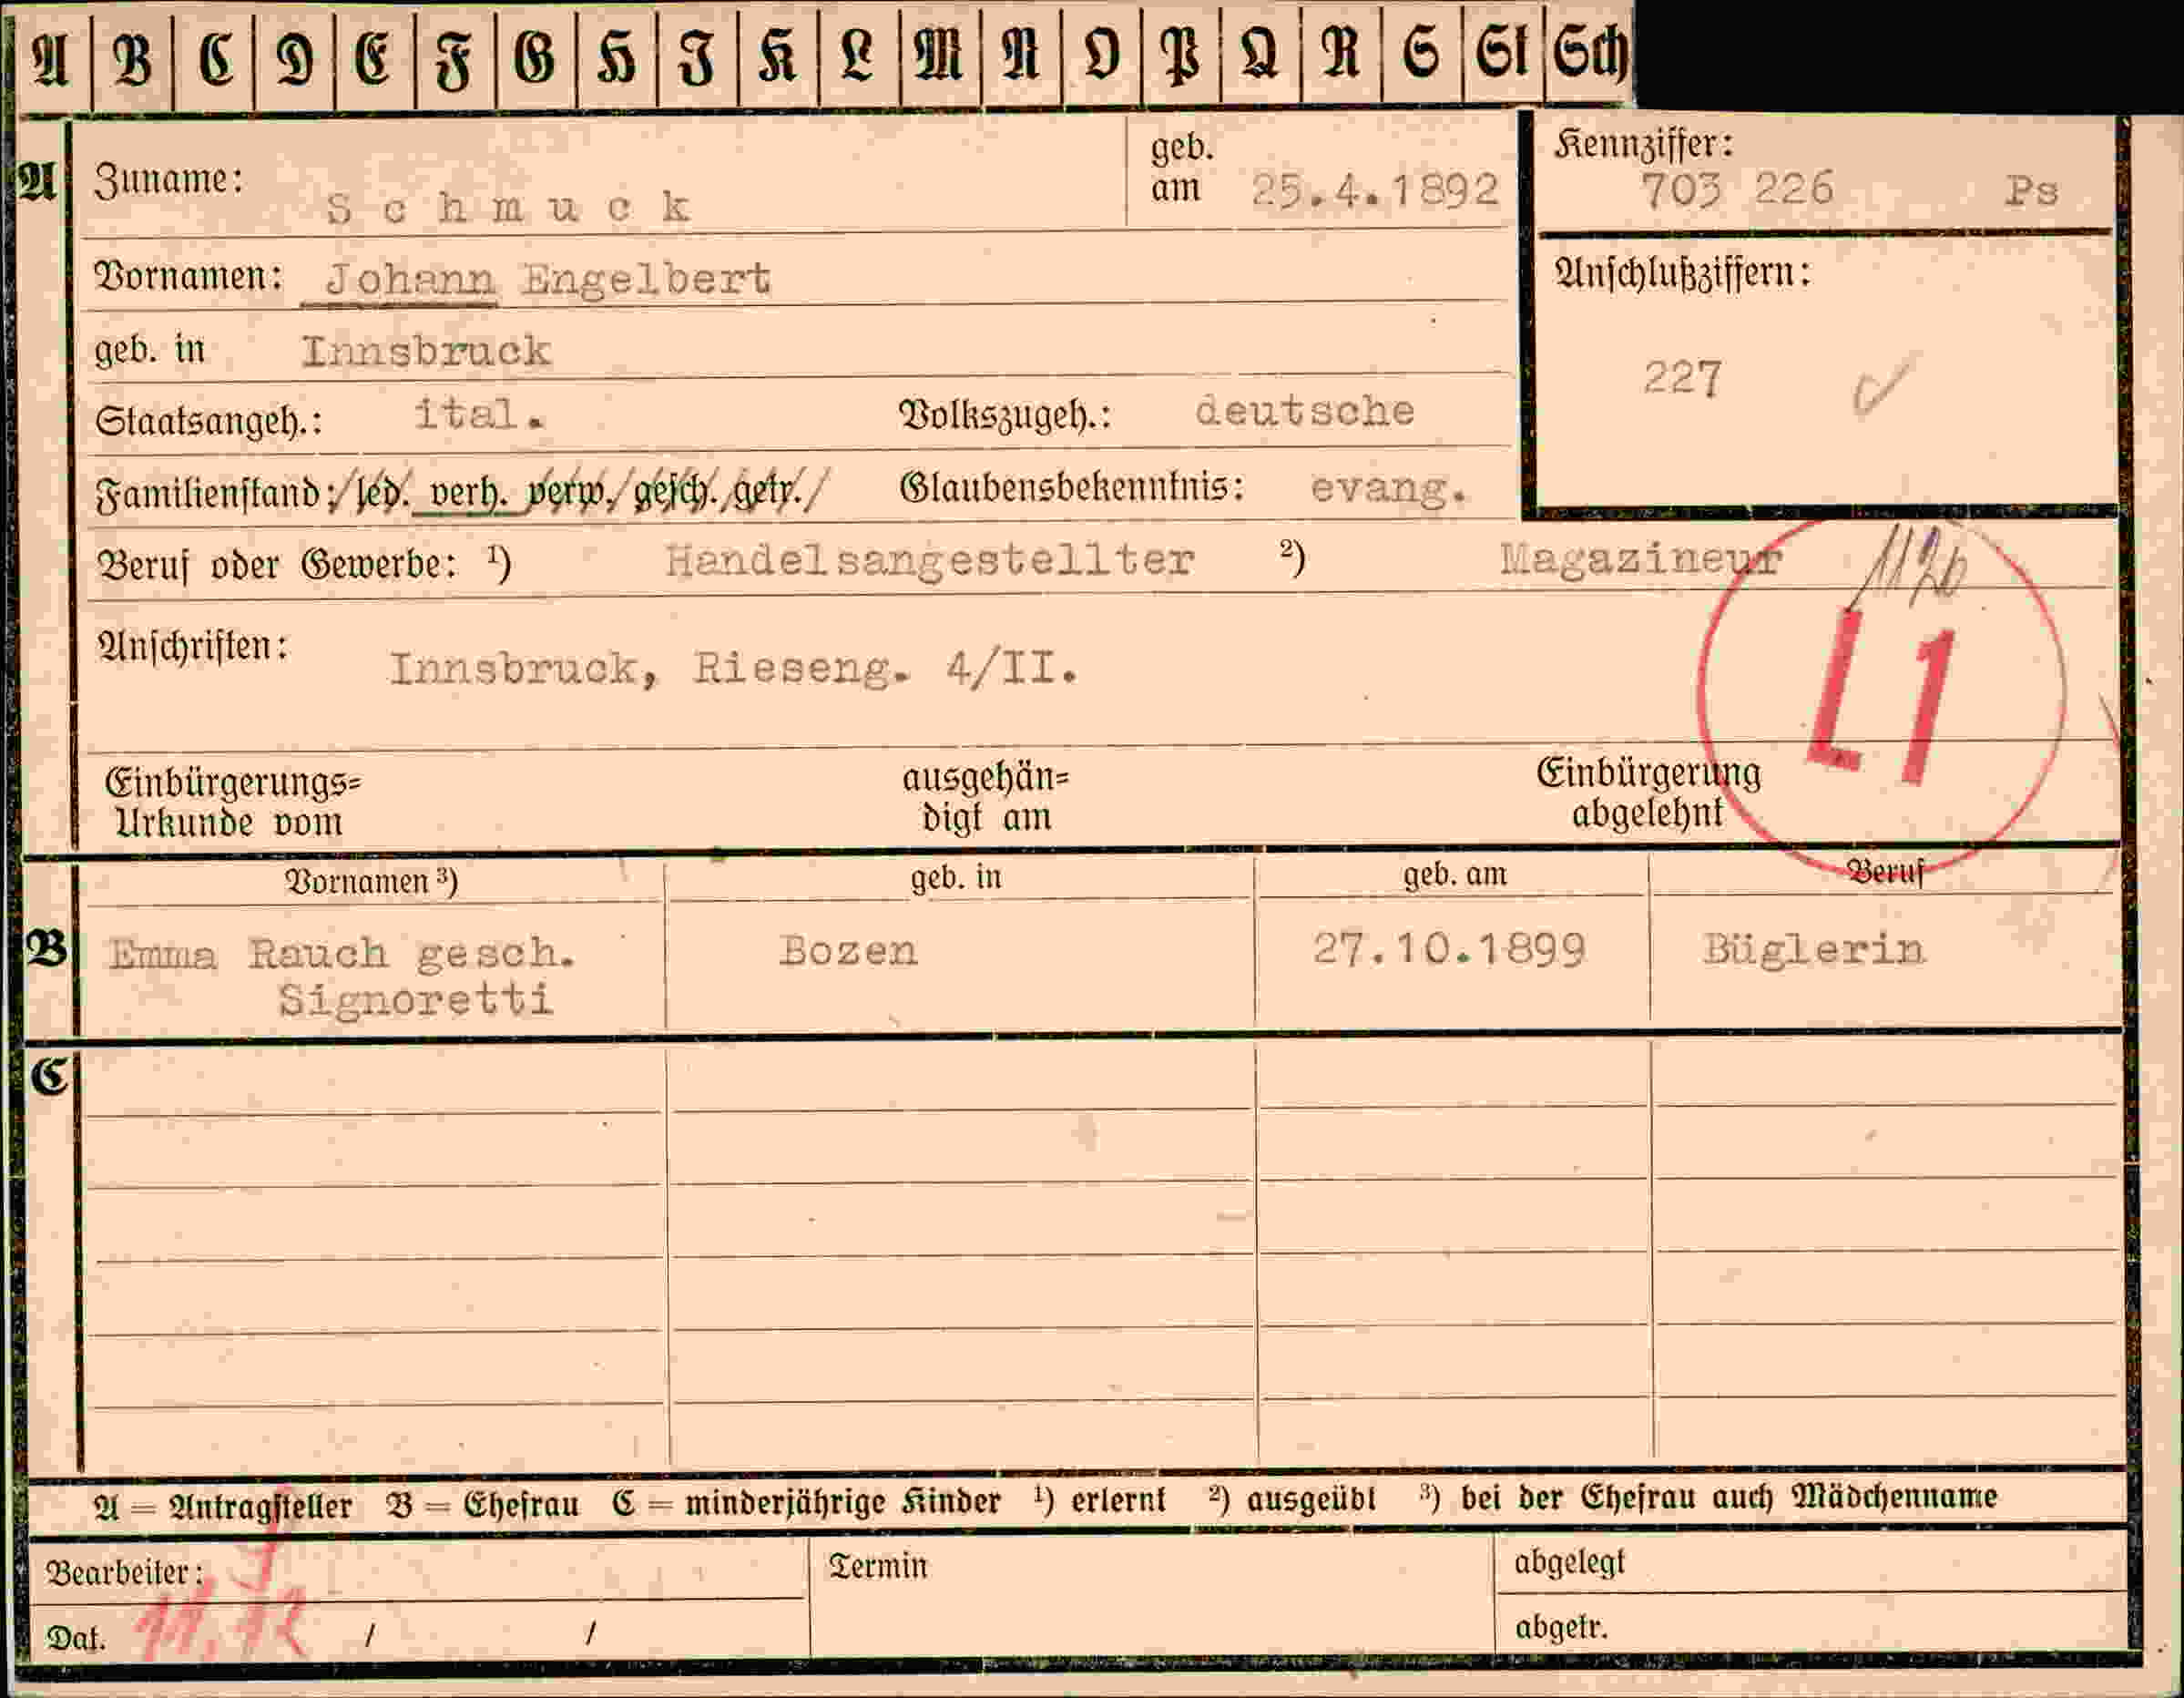 A B C D E F G H I K L M N O P Q R S St Sch
A Zuname: Schmuck geb. am 25.4.1892
Kennziffer: 703 226 Ps
Vornamen: Johann Engelbert
Anschlußziffern:
geb. in Innsbruck
227
Staatsangeh.: ital. Volkszugeh.: deutsche
Familienstand: led. verh. verw. gesch. getr. Glaubensbekenntnis: evang.
Beruf oder Gewerbe: 1) Handelsangestellter 2) Magazineur
L1
Anschriften: Innsbruck, Rieseng. 4/II.
Einbürgerungs= ausgehän= Einbürgerung
Urkunde vom digt am abgelehnt
Vornamen 3) geb. in geb. am Beruf
B Emma Rauch gesch. Bozen 27.10.1899 Büglerin
Signoretti
C
A = Antragsteller B = Ehefrau C = minderjährige Kinder 1) erlernt 2) ausgeübt 3) bei der Ehefrau auch Mädchenname
Bearbeiter: Termin abgelegt
Dat. 11.12 / / abgetr.